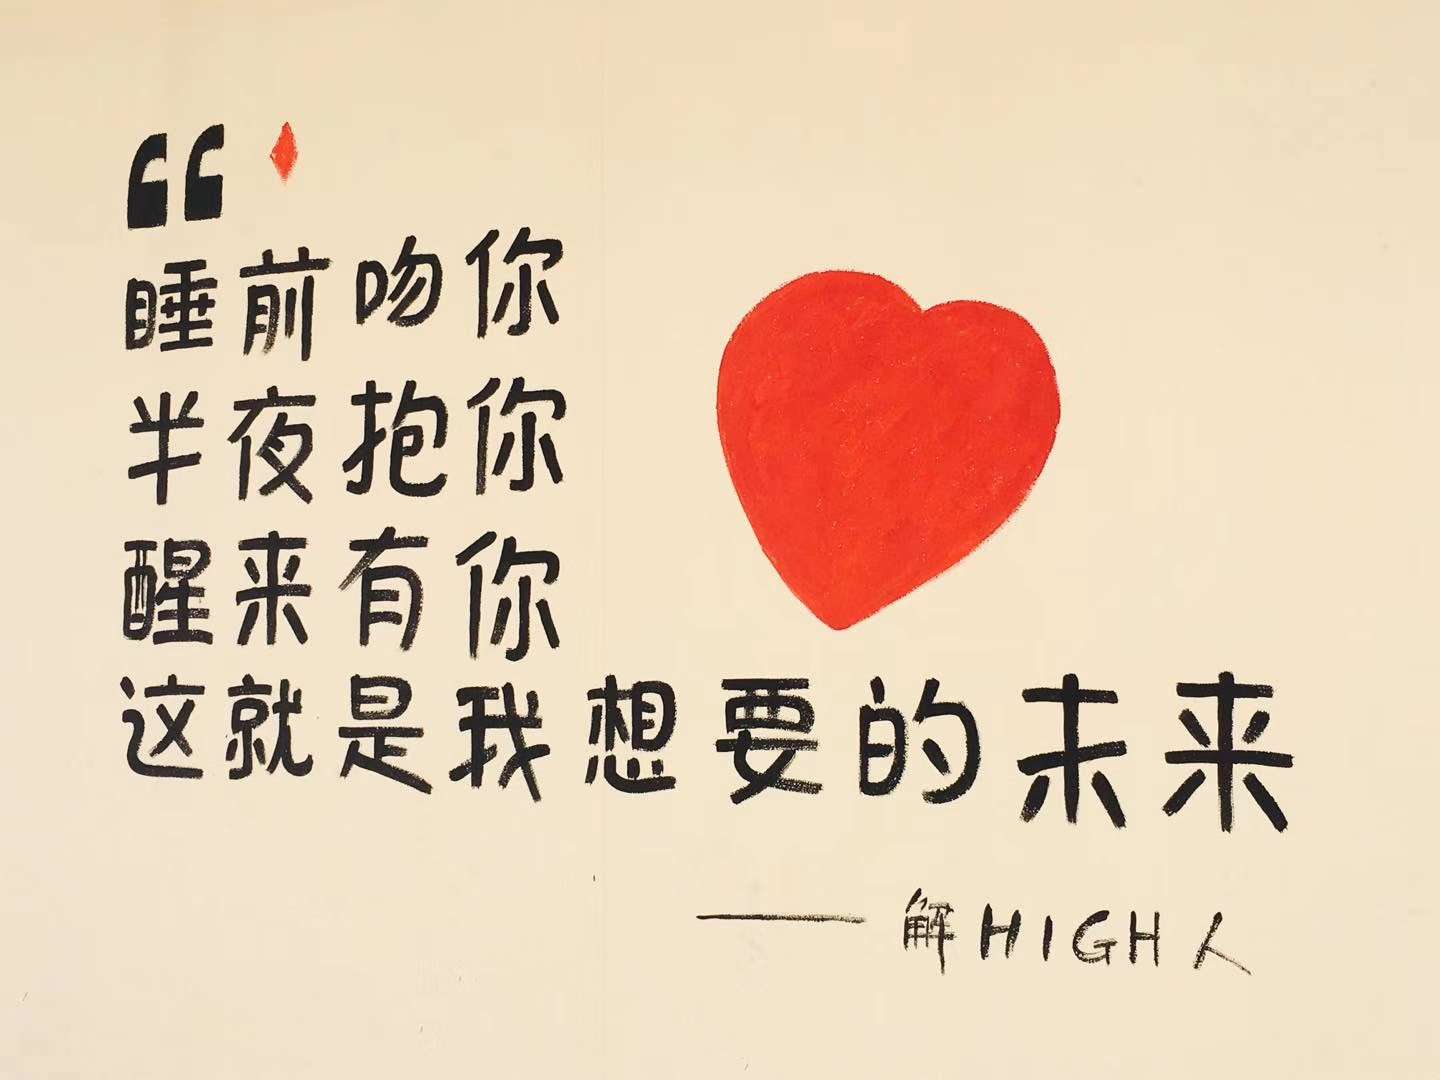 “
睡前吻你
半夜抱你
醒来有你
这就是我想要的未来
——解HIGH人